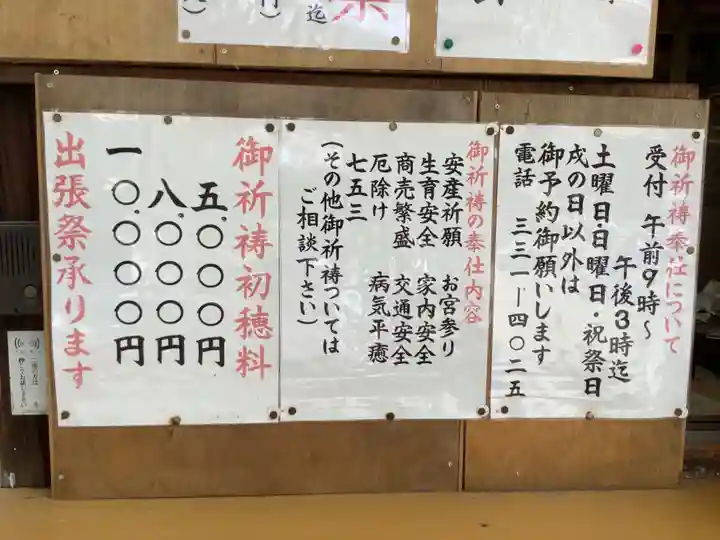 御祈祷奉社について
受付 午前9時〜
午後3時迄
土曜日・日曜日・祝祭日
戌の日以外は
御予約御願いします
電話 三三一ー四〇二五
御祈祷の奉仕内容
安産祈願 お宮参り
生育安全 家内安全
商売繁盛 交通安全
厄除け 病気平癒
七五三
(その他御祈祷ついては
ご相談下さい)
御祈祷初穂料
五.〇〇〇円
八.〇〇〇円
一〇.〇〇〇円
出張祭承ります